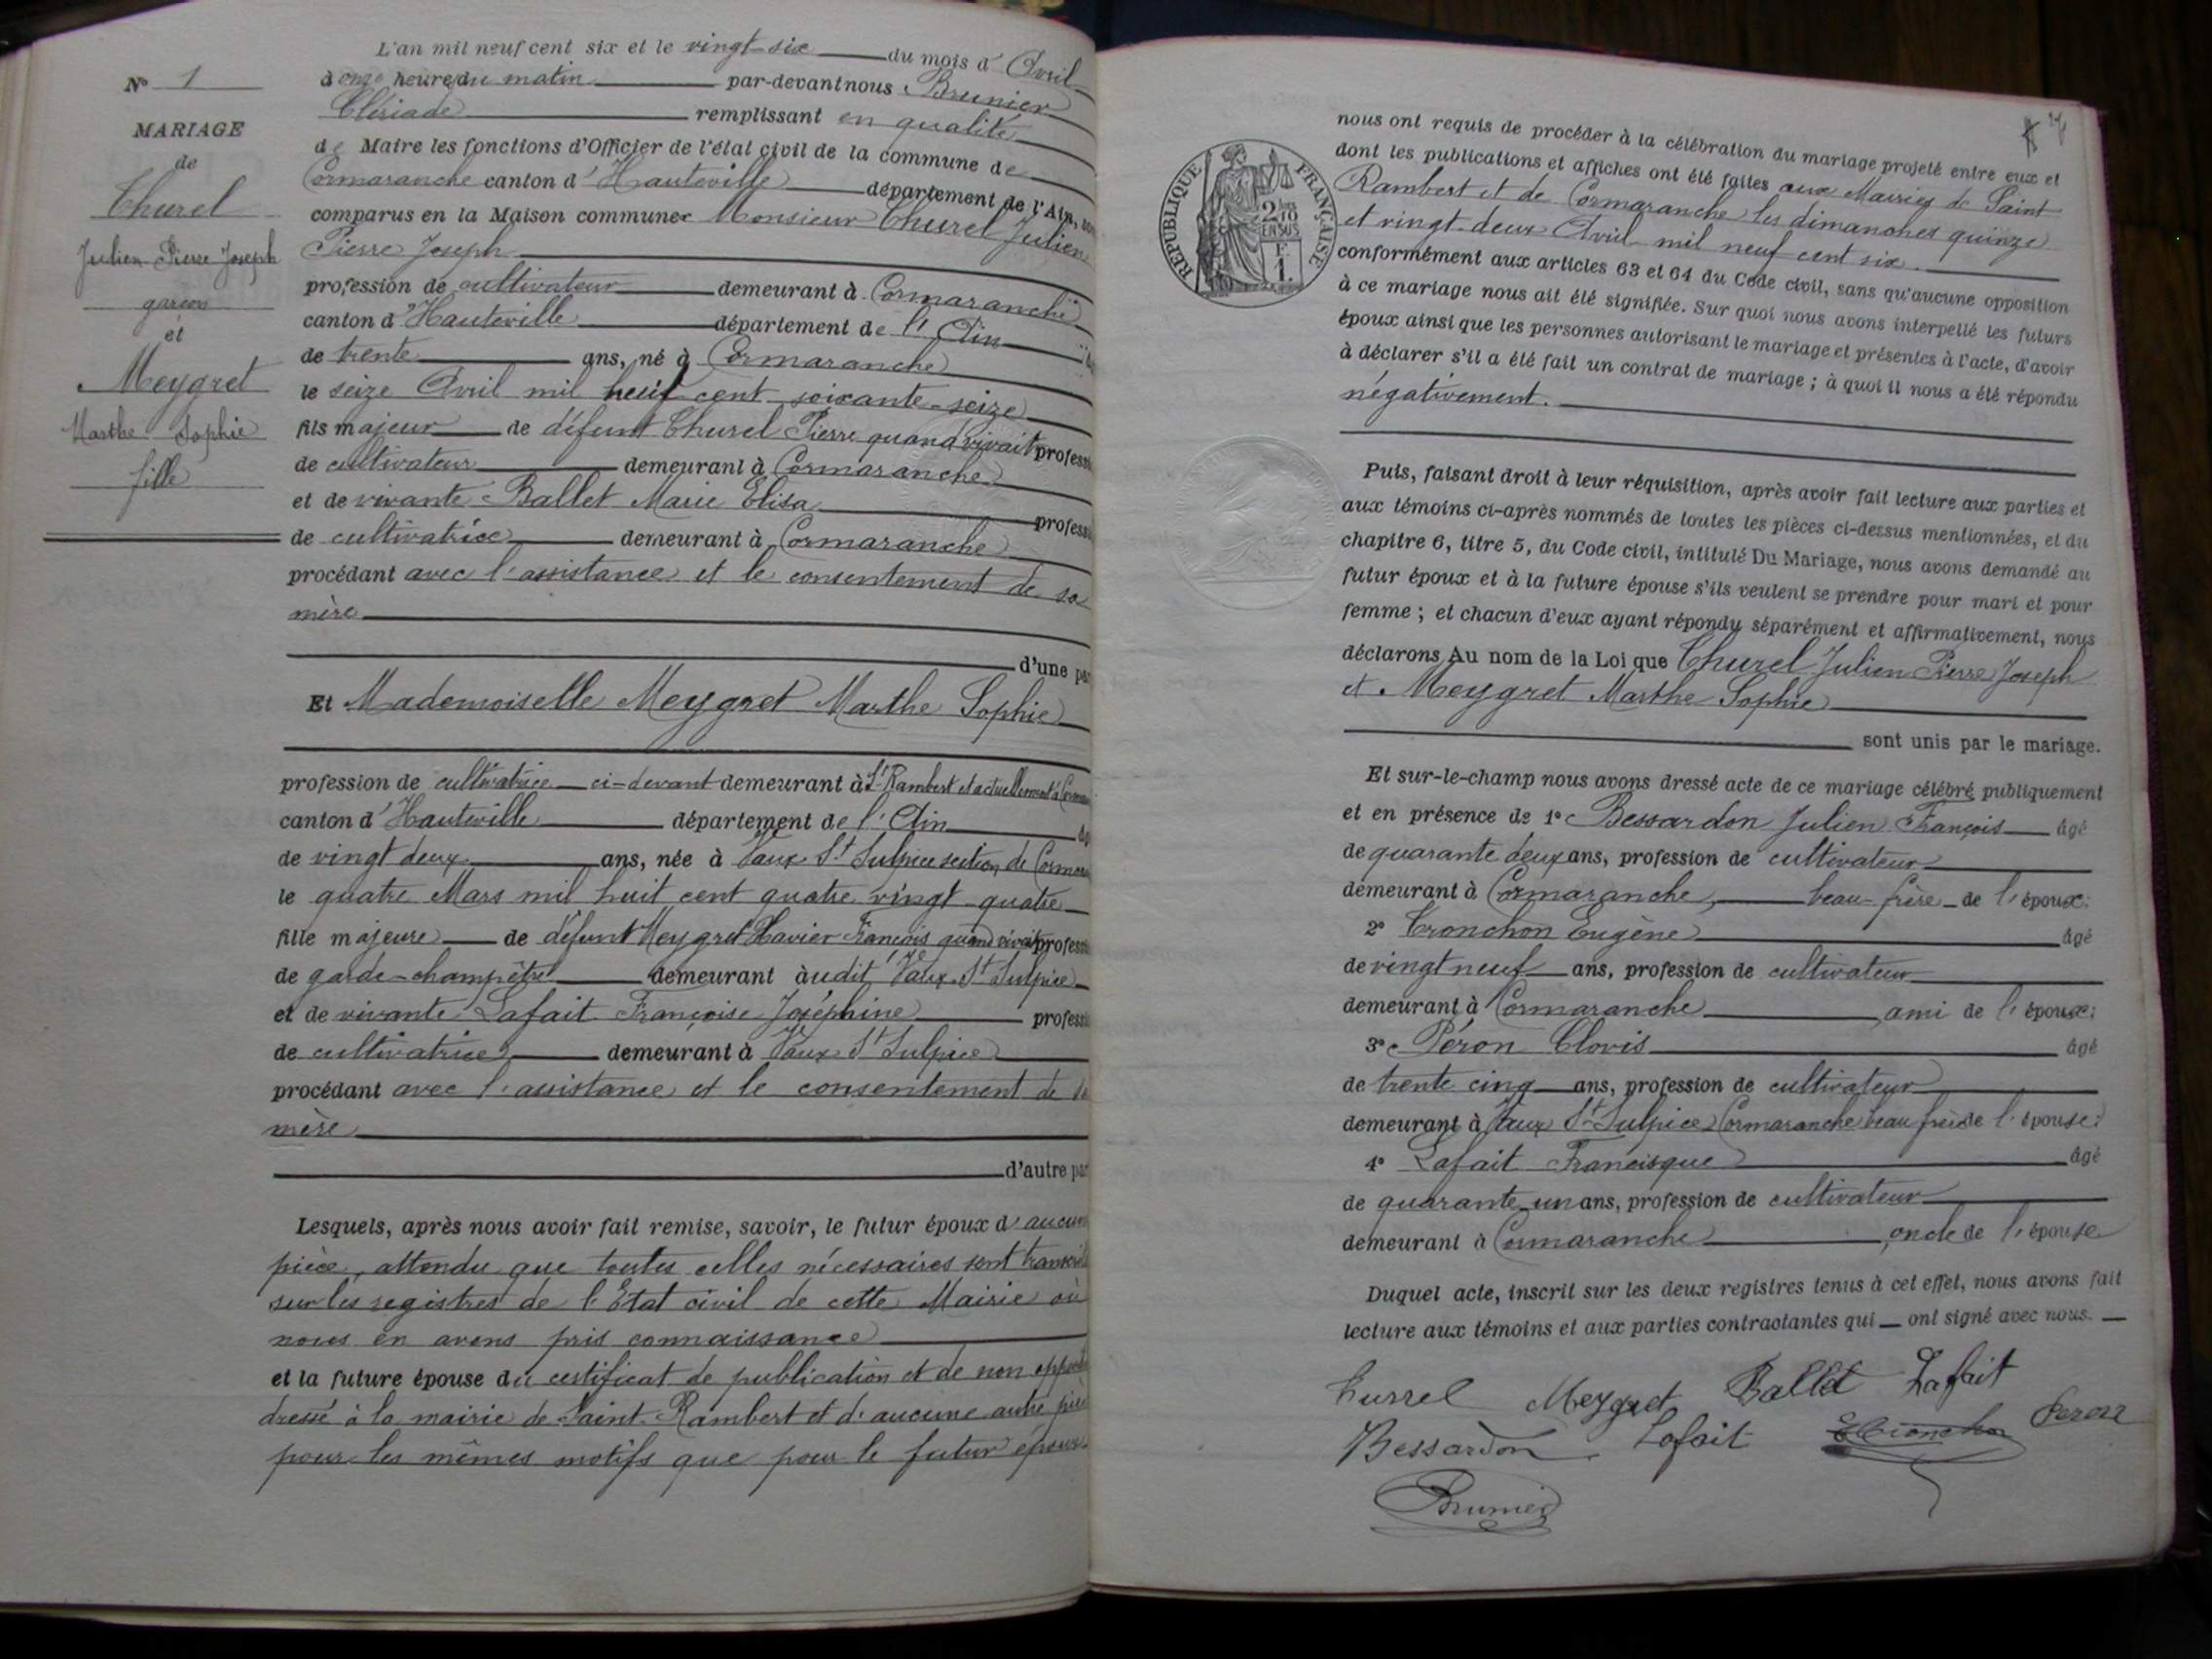 L'an mil neuf cent six et le vingt-six du mois d'Avril
à onze heures du matin par-devant nous Brunier
Clériade remplissant en qualité
de Maire les fonctions d'Officier de l'état civil de la commune de
Cormaranche canton d'Hauteville département de l'Ain,
comparus en la Maison commune Monsieur Churel Julien
Pierre Joseph
profession de cultivateur demeurant à Cormaranche
canton d'Hauteville département de l'Ain
de trente ans, né à Cormaranche
le seize Avril mil huit cent soixante-seize
fils majeur de défunt Churel Pierre quand vivait profess
de cultivateur demeurant à Cormaranche
et de vivante Ballet Marie Elisa profess
de cultivatrice demeurant à Cormaranche
procédant avec l'assistance et le consentement de sa
mère
d'une par
Et Mademoiselle Meygret Marthe Sophie
profession de cultivatrice ci-devant demeurant à St Rambert et actuellement à Corma
canton d'Hauteville département de l'Ain
de vingt deux ans, née à Vaux St Sulpice section de Corma
le quatre Mars mil huit cent quatre vingt-quatre
fille majeure de défunt Meygret Xavier François quand vivait profess
de garde-champêtre demeurant àudit Vaux St Sulpice
et de vivante Lafait Françoise Joséphine profess
de cultivatrice demeurant à Vaux St Sulpice
procédant avec l'assistance et le consentement de
mère
d'autre par
Lesquels, après nous avoir fait remise, savoir, le futur époux d'aucun
pièce, attendu que toutes celles nécessaires sont transcrit
sur les registres de l'Etat civil de cette Mairie où
nous en avons pris connaissance
et la future épouse du certificat de publication et de non oppos
dressé à la mairie de Saint-Rambert et d'aucune autre piè
pour les mêmes motifs que pour le futur époux.
N° 1
MARIAGE
de
Churel
Julien Pierre Joseph
garçon
et
Meygret
Marthe Sophie
fille
RÉPUBLIQUE FRANÇAISE
2/10
EN SUS
F.
1.
nous ont requis de procéder à la célébration du mariage projeté entre eux et
dont les publications et affiches ont été faites aux Mairies de Saint
Rambert et de Cormaranche les dimanches quinze
et vingt-deux Avril mil neuf cent six.
conformément aux articles 63 et 64 du Code civil, sans qu'aucune opposition
à ce mariage nous ait été signifiée. Sur quoi nous avons interpellé les futurs
époux ainsi que les personnes autorisant le mariage et présentes à l'acte, d'avoir
à déclarer s'il a été fait un contrat de mariage ; à quoi il nous a été répondu
négativement.
Puis, faisant droit à leur réquisition, après avoir fait lecture aux parties et
aux témoins ci-après nommés de toutes les pièces ci-dessus mentionnées, et du
chapitre 6, titre 5, du Code civil, intitulé Du Mariage, nous avons demandé au
futur époux et à la future épouse s'ils veulent se prendre pour mari et pour
femme ; et chacun d'eux ayant répondu séparément et affirmativement, nous
déclarons Au nom de la Loi que Churel Julien Pierre Joseph
et Meygret Marthe Sophie
sont unis par le mariage.
Et sur-le-champ nous avons dressé acte de ce mariage célébré publiquement
et en présence de 1° Bessardon Julien François âgé
de quarante deux ans, profession de cultivateur
demeurant à Cormaranche, beau-frère de l'époux;
2° Tronchon Eugène âgé
de vingt neuf ans, profession de cultivateur
demeurant à Cormaranche ami de l'époux;
3° Péron Clovis âgé
de trente cinq ans, profession de cultivateur
demeurant à Vaux St Sulpice Cormaranche beau frère de l'épouse;
4° Lafait Francisque âgé
de quarante un ans, profession de cultivateur
demeurant à Cormaranche oncle de l'épouse
Duquel acte, inscrit sur les deux registres tenus à cet effet, nous avons fait
lecture aux témoins et aux parties contractantes qui ont signé avec nous.
Meygret Ballet Lafait
Bessardon Lafait E Cronchon Peron
Brunier